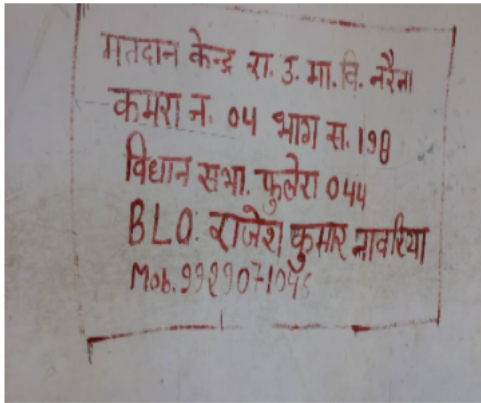 मतदान केन्द्र रा. उ. मा. वि. नरैना
कमरा न. 04 भाग स. 198
विधान सभा. फुलेरा 044
BLO: राजेश कुमार बावरिया
Mob.